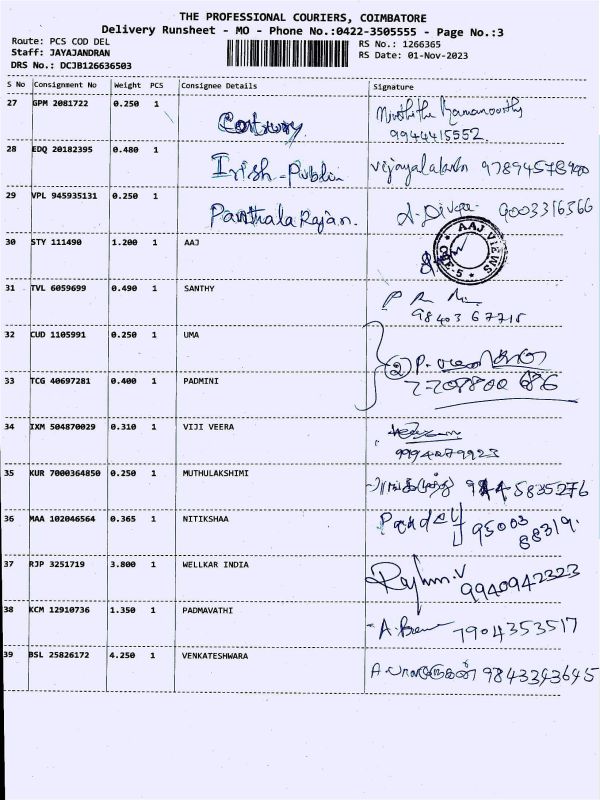 THE PROFESSIONAL COURIERS, COIMBATORE
Delivery Runsheet - MO - Phone No.:0422-3505555 - Page No.:3
Route: PCS COD DEL
RS No.: 1266365
Staff: JAYAJANDRAN
RS Date: 01-Nov-2023
DRS No.: DCJB126636503
S No Consignment No Weight PCS Consignee Details Signature
27 GPM 2081722 0.250 1
9944415552.
28 EDQ 20182395 0.480 1 Irish-Publin
29 VPL 945935131 0.250 1 9003316566
30 STY 111490 1.200 1 AAJ AAJ VIEWS CBE-5
31 TVL 6059699 0.490 1 SANTHY
98403 67715
32 CUD 1105991 0.250 1 UMA ② P.
33 TCG 40697281 0.400 1 PADMINI
34 IXM 504870029 0.310 1 VIJI VEERA
35 KUR 7000364850 0.250 1 MUTHULAKSHIMI
36 MAA 102046564 0.365 1 NITIKSHAA 95003
88319.
37 RJP 3251719 3.800 1 WELLKAR INDIA 9940942323
38 KCM 12910736 1.350 1 PADMAVATHI 7904353517
39 BSL 25826172 4.250 1 VENKATESHWARA 9843343645